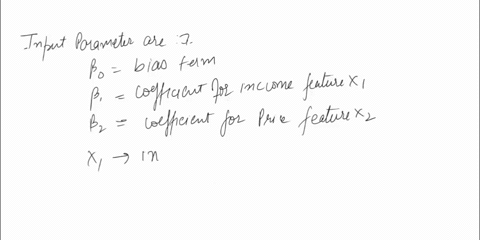 Input Parameter are :-
β₀ = bias term
β₁ = coefficient for income feature X₁
β₂ = coefficient for Price feature X₂
X₁ → in